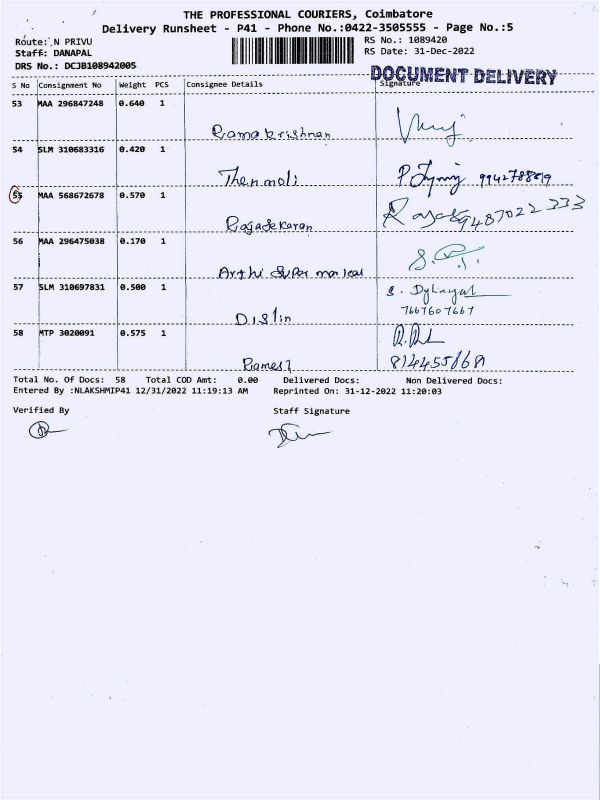 THE PROFESSIONAL COURIERS, Coimbatore
Delivery Runsheet - P41 - Phone No.:0422-3505555 - Page No.:5
Route: N PRIVU RS No.: 1089420
Staff: DANAPAL RS Date: 31-Dec-2022
DRS No.: DCJB108942005
DOCUMENT DELIVERY
S No Consignment No Weight PCS Consignee Details Signature
53 MAA 296847248 0.640 1
Ramakrishnan
54 SLM 310683316 0.420 1
Thenmoli
55 MAA 568672678 0.570 1
9487022333
Rajasekaran
56 MAA 296475038 0.170 1
Arthi Super market
57 SLM 310697831 0.500 1
7667607667
Dislin
58 MTP 3020091 0.575 1
Ramesh
Total No. Of Docs: 58 Total COD Amt: 0.00 Delivered Docs: Non Delivered Docs:
Entered By :NLAKSHMIP41 12/31/2022 11:19:13 AM Reprinted On: 31-12-2022 11:20:03
Verified By Staff Signature